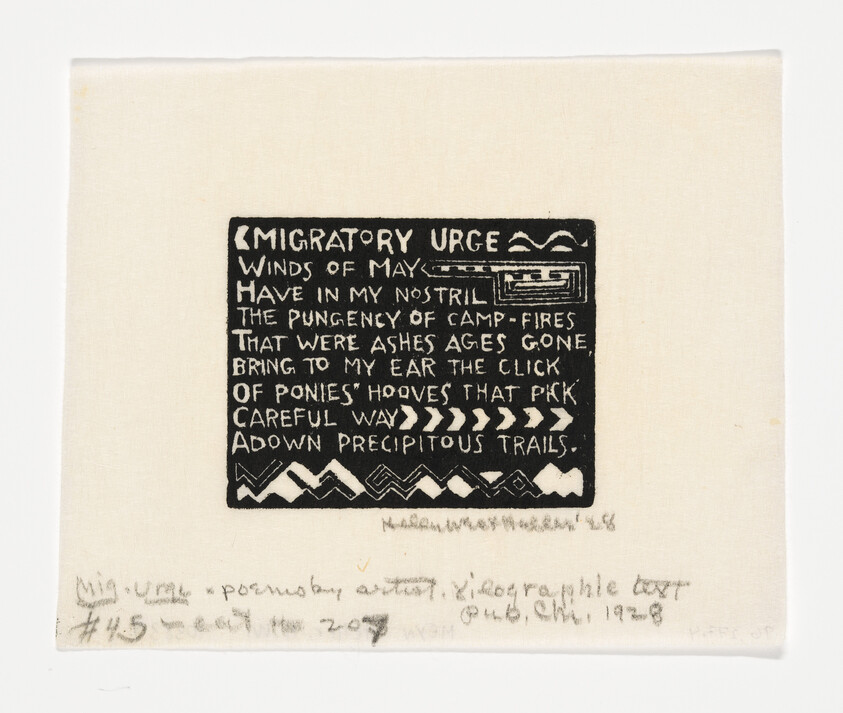 MIGRATORY URGE
WINDS OF MAY
HAVE IN MY NOSTRIL
THE PUNGENCY OF CAMP-FIRES
THAT WERE ASHES AGES GONE,
BRING TO MY EAR THE CLICK
OF PONIES' HOOVES THAT PICK
CAREFUL WAY
ADOWN PRECIPITOUS TRAILS.
Helen West Heller '28
Mig. Urge poem by artist. Xilographic text
Pub. Chi, 1928
#45 - cat no 207